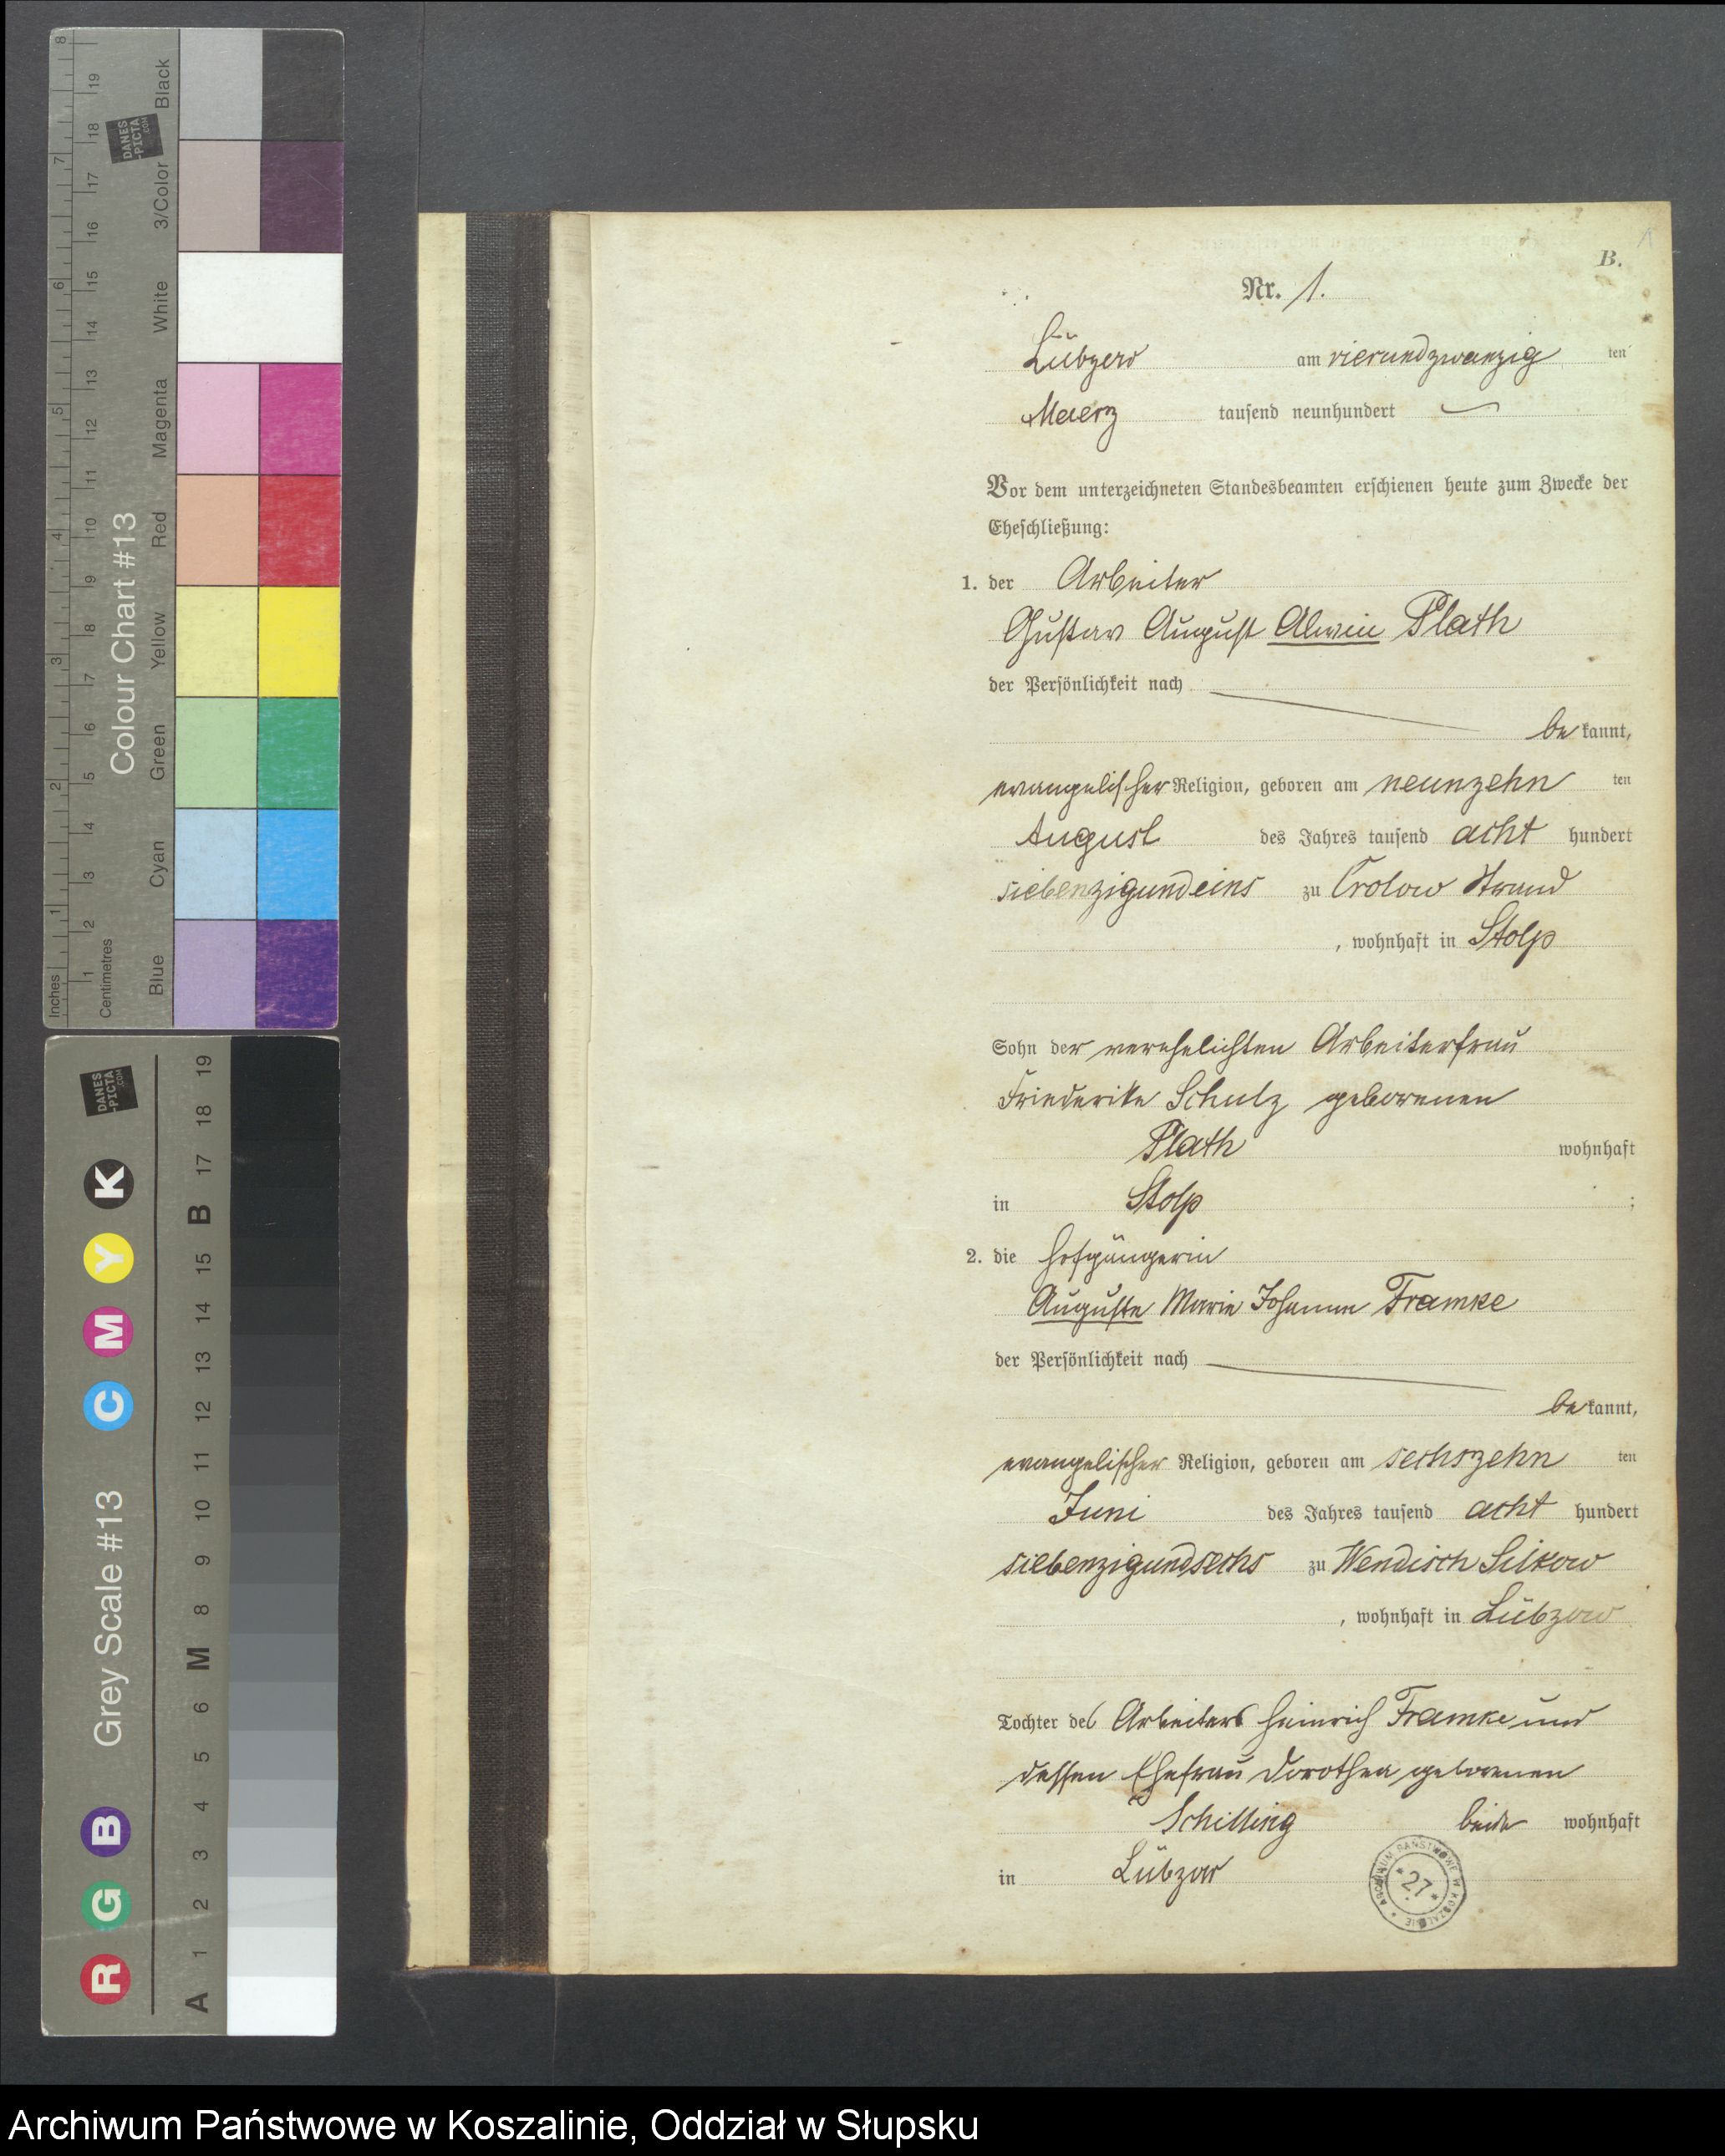 B.
Nr. 1.
Lübzow am vierundzwanzig ten
Maerz tausend neunhundert
Vor dem unterzeichneten Standesbeamten erschienen heute zum Zwecke der
Eheschließung:
1. der Arbeiter
Gustav August Alwin Plath
der Persönlichkeit nach
be kannt,
evangelischer Religion, geboren am neunzehn ten
August des Jahres tausend acht hundert
siebenzigundeins zu Crolow Strand
, wohnhaft in Stolp
Sohn der verehelichten Arbeiterfrau
Friederike Schulz geborenen
Plath wohnhaft
in Stolp ;
2. die Hofgängerin
Auguste Marie Johanne Framke
der Persönlichkeit nach
be kannt,
evangelischer Religion, geboren am sechszehn ten
Juni des Jahres tausend acht hundert
siebenzigundsechs zu Wendisch Silkow
, wohnhaft in Lübzow
Tochter des Arbeiters Heinrich Framke und
dessen Ehefrau Dorothea geborenen
Schilling beide wohnhaft
in Lübzow
ARCHIWUM PAŃSTWOWE W KOSZALINIE
* 27 *
Colour Chart #13
Inches
Centimetres
Blue Cyan Green Yellow Red Magenta White 3/Color Black
1 2 3 4 5 6 7 8
1 2 3 4 5 6 7 8 9 10 11 12 13 14 15 16 17 18 19
DANES
-PICTA
.COM
Grey Scale #13
R G B C M Y K
A 1 2 3 4 5 6 M 8 9 10 11 12 13 14 15 B 17 18 19
DANES
-PICTA
.COM
Archiwum Państwowe w Koszalinie, Oddział w Słupsku